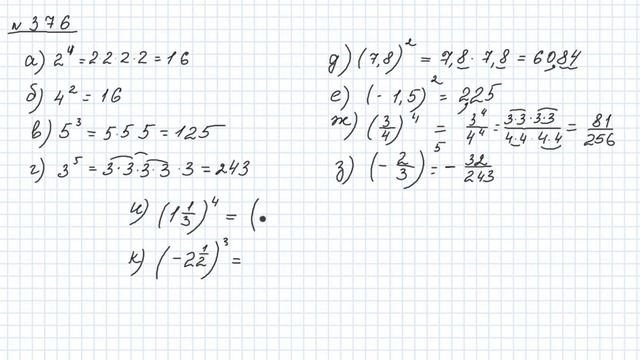 № 376
а) 2⁴ = 2·2·2·2 = 16
б) 4² = 16
в) 5³ = 5·5·5 = 125
г) 3⁵ = 3·3·3·3·3 = 243
д) (7,8)² = 7,8 · 7,8 = 60,84
е) (-1,5)² = 2,25
ж) (3/4)⁴ = 3⁴/4⁴ = 3·3·3·3/4·4·4·4 = 81/256
з) (-2/3)⁵ = -32/243
и) (1 1/3)⁴ = (
к) (-2 1/2)³ =